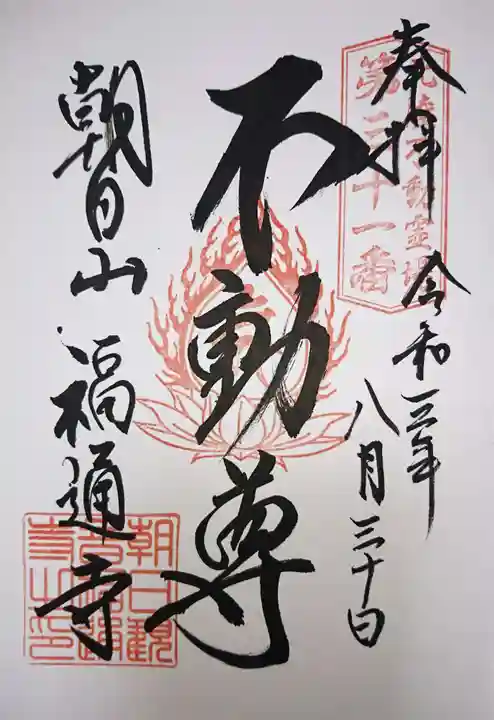 奉拝
令和三年
八月三十日
第三十一番
不動尊
朝日山
福通寺